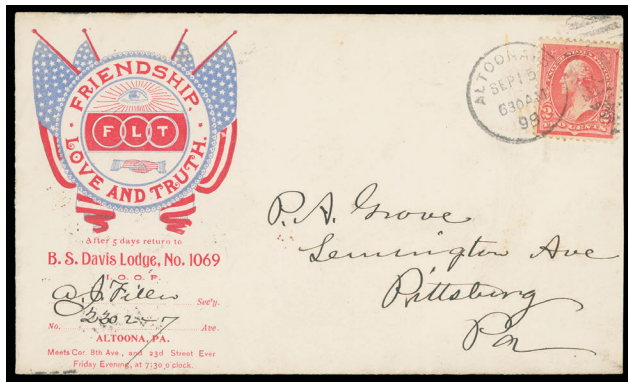 FRIENDSHIP.
F L T
LOVE AND TRUTH.
After 5 days return to
B. S. Davis Lodge, No. 1069
I. O. O. F.
Sec'y.
No. 2302 - 7 Ave.
ALTOONA, PA.
Meets Cor 8th Ave., and 23d Street Ever
Friday Evening, at 7:30 o'clock.
ALTOONA
SEP 15
630AM
99
2 TWO CENTS 2
P. A. Grove
Lemington Ave
Pittsburg
Pa